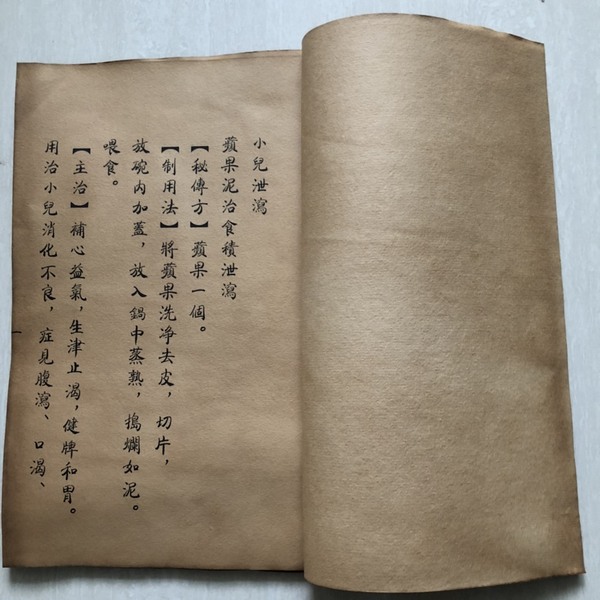 小兒泄瀉
蘋果泥治食積泄瀉
【秘傳方】蘋果一個。
【制用法】將蘋果洗净去皮，切片，
放碗内加蓋，放入鍋中蒸熱，搗爛如泥。
喂食。
【主治】補心益氣，生津止渴，健脾和胃。
用治小兒消化不良，症見腹瀉、口渴、